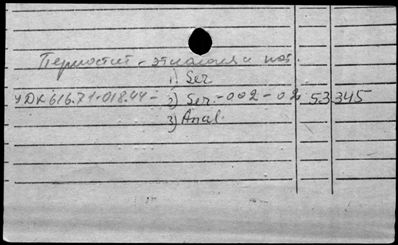 Периостит - этиология и пат.
1) Ser
УДК 616.71-018.44- 2) Ser.-002-02 53 345
3) Anal.